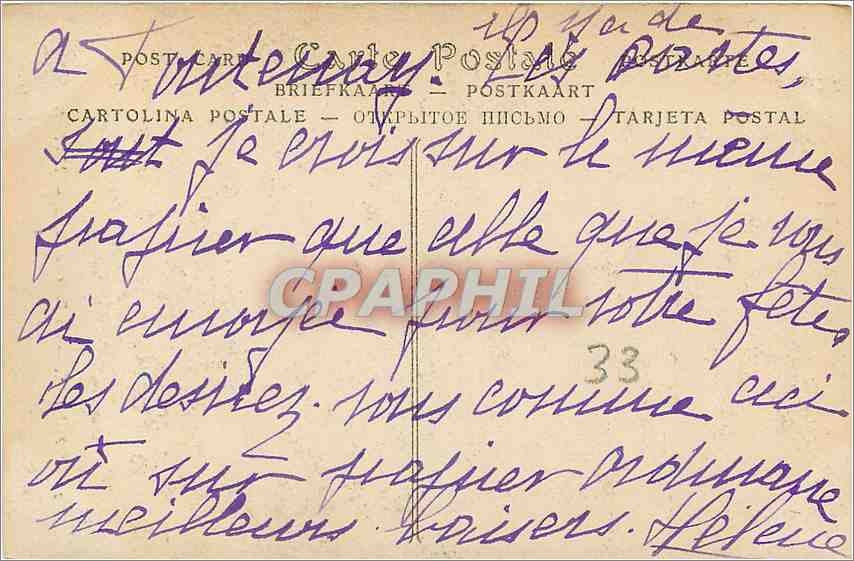 il y a de
à Fontenay. Les cartes,
POST CARD Carte Postale POSTKARTE
BRIEFKAART — POSTKAART
CARTOLINA POSTALE — ОТКРЫТОЕ ПИСЬМО — TARJETA POSTAL
sont je crois sur le meme
papier que celle que je vous
ai envoyée pour votre fête.
les desirez-vous comme ceci
où sur papier ordinaire
meilleurs baisers. Hélène
CPAPHIL
33